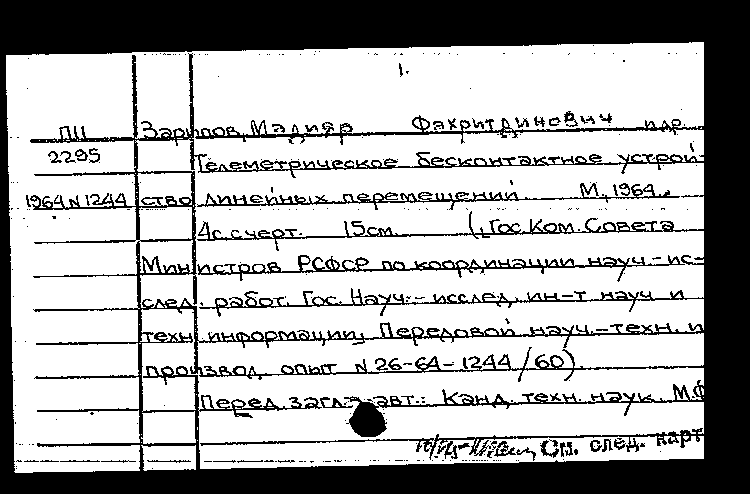 1.
ПЦ Зарипов, Мадияр Фахритдинович и др.
2295 Телеметрическое бесконтактное устрой-
1964 N 1244 ство линейных перемещений. М., 1964.
4с. с черт. 15см. (Гос. Ком. Совета
Министров РСФСР по координации науч.-ис-
след. работ. Гос. Науч.-исслед. ин-т науч и
техн. информации. Передовой науч.-техн. и
производ. опыт N 26-64-1244/60).
Перед загл. авт.: Канд. техн. наук. М.Ф
См. след. карт